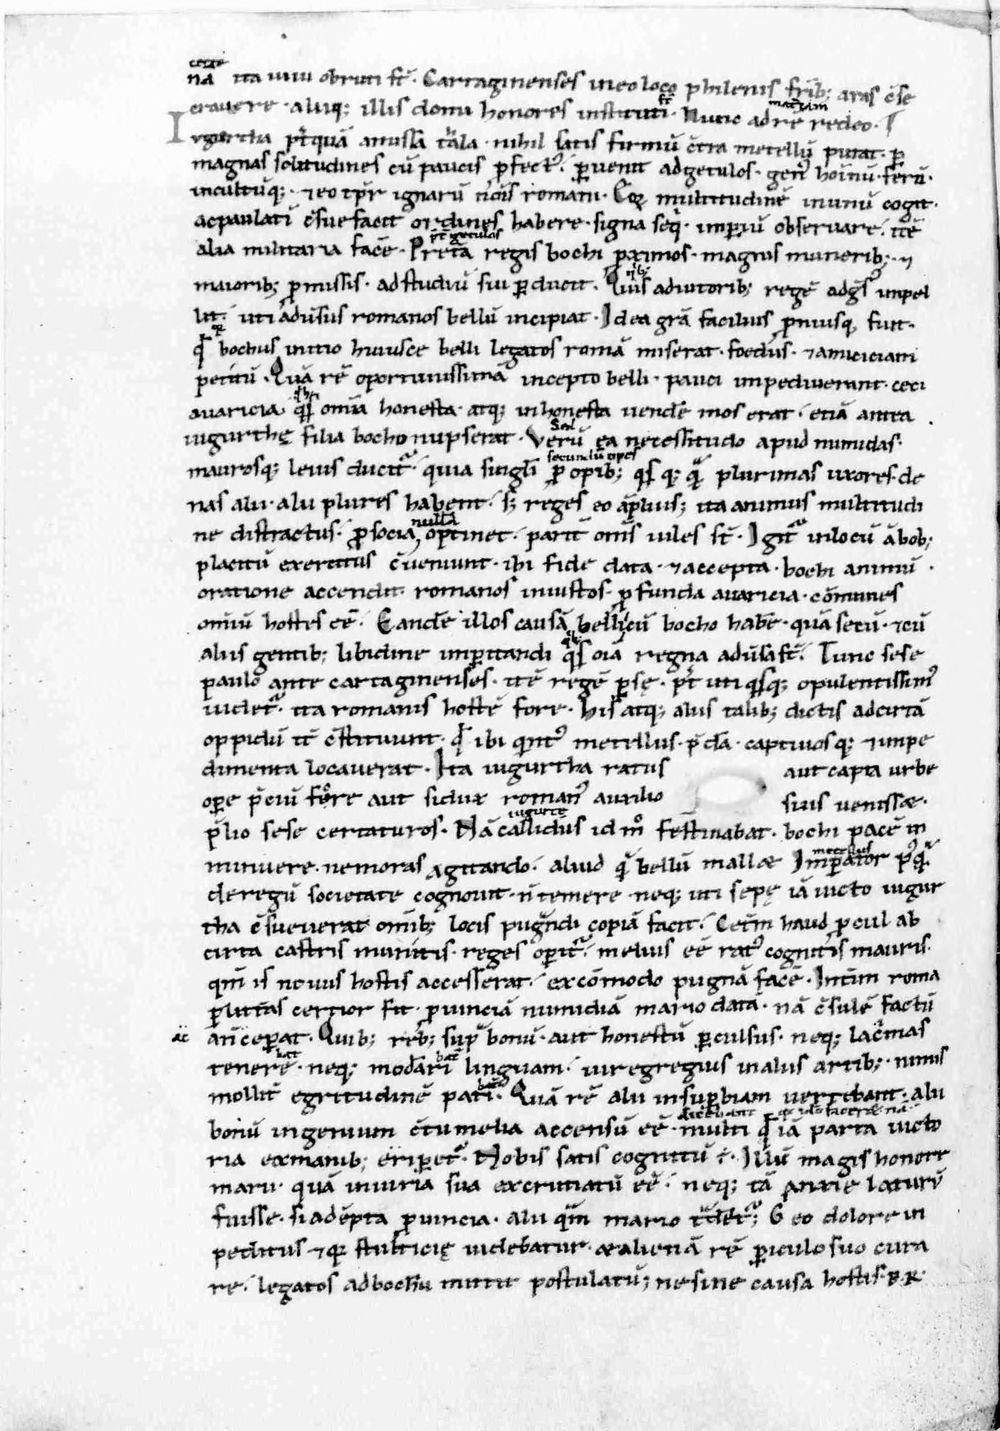 certe
nā ita uiui obruti st̄. Cartaginenses in eo loco philenis frib; aras c̄se
crauere. aliiq; illis domi honores instituti st̄. Nunc ad rē redeo.
Iugurtha p̄tquā amissa tala. nihil satis firmū c̄tra metellū putat. ꝑ
magnas solitudines cū paucis ꝓfectꝰ. ꝑuenit ad getulos. genꝰ hoīnū ferū.
incultūq;. ⁊ eo tp̄r ignarū nōis romani. Eoꝝ multitudinē in unū cogit.
ac paulatī c̄suefacit ordines habere. signa seq̄. imꝑiū obseruare. itē
alia militaria facē. Pret̄ea regis bochi ꝓximos. magnis munerib;. ⁊
maiorib; ꝓmissis. ad studiū sui ꝑducit. Quis adiutorib; regē adgs̄ impel
lit. uti aduͥsus romanos bellū incipiat. Id ea grā facilius ꝓniusq, fuit.
qđ bochus initio huiusce belli legatos romā miserat. foedꝰis. ⁊ amicician
petitū. Quā rē oportunissimā incepto belli. pauci impediuerant. ceci
auaricia. qs̄ omīa honesta. atq; inhonesta uendē mos erat. etiā antea
iugurthę filia bocho nupserat. Verū ea necessitudo apud numidas.
maurosq; leuis ducit̄. quia singłi ꝑ opib; qs̄ q; q̄ plurimas uxores. de
nas alii. alii plures habent. s; reges eo āplius; ita animus multitudi
ne distractus. ꝓ socia nullā optinet. parit̄ om̄s uiles st̄. Igit̄ in locū ābob;
placitū exercitus c̄ueniunt. ibi fide data. ⁊ accepta. bochi animū.
oratione accendit. romanos iniustos. ꝓfunda auaricia. cōmunes
omīū hostes eē. Eandē illos causā belli cū bocho habē. quā secū. ⁊ cū
aliis gentib; libidine imꝑitandi qs̄ oīa regna aduͥsa st̄. Tunc sese
paulo ante cartaginenses. itē regē ꝑsę. p̄t uti qs̄q; opulentissimꝰ
uidet̄. ita romanis hostē fore. His atq; aliis talib; dictis ad cirtā
oppidū it̄ c̄stituunt. qđ ibi qintꝰ metellus. p̄dā. captiuosq; ⁊ inpe
dimenta locauerat. Ita iugurtha ratus aut capta urbe
oꝑe p̄ciū fore aut si dux romanꝰ auxilio suis uenissæ.
p̄lio sese certaturos. Nā callidus id m̊ festinabat. bochi pacē in
minuere. ne moras agitando. aliud q̄ bellū mallæ Imꝑator pꝰq̄
de regū societate cognouit. n̄ temere. neq; uti sepę iā uicto iugur
tha c̄sueuerat omīb; locis pugn̄di copiā facit. Cet̄m haud ꝓcul ab
cirta castris munitis. reges oꝑit̄. melius eē ratꝰ cognitis mauris.
qm̄ is nouus hostis accesserat. ex cōmodo pugnā facē. Intīm roma
ꝑ litt̄as certior fit. ꝓuinciā numidiā mario data. nā c̄sulē factū
ān ceꝑat. Quib; reb; sup̄ bonū. aut honestū ꝑculsus. neq; lac̄mas
tenerē. neq; modārī linguam. uir egregius in aliis artib;. nimis
mollit̄ egritudinē patī. Quā rē alii in suꝑbiam uertebant. alii
bonū ingenium c̄tumelia accensū eē. multi qđ iā parta uicto
ria ex manib; eriꝑet̄. Nobis satis cognitū ē. Illū magis honore
marii. quā iniuria sua excruciatū eē. neq; tā anxie laturū
fuisse. si adēpta ꝓuincia. alii qm̄ mario tdet̄; G eo dolore in
peditus ⁊ qꝛ stulticię uidebatur. æ alienā rē ꝑiculo suo cura
re. legatos ad bochū mittit postulatū; ne sine causa hostis. P. R.